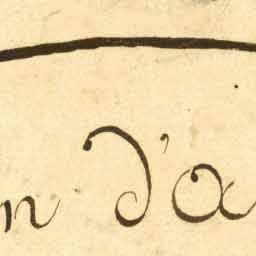 n d'a